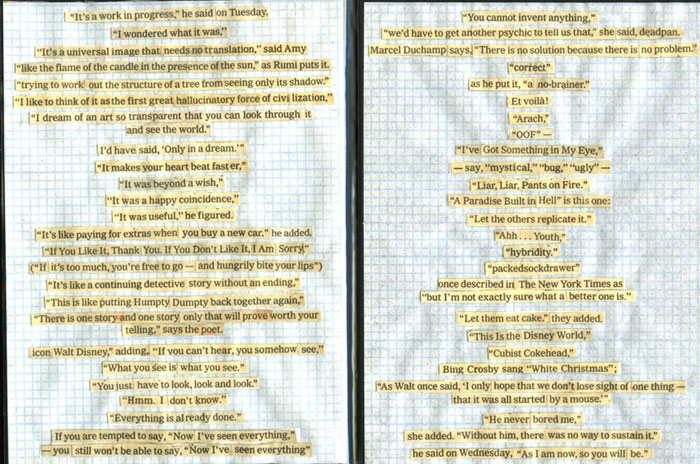 "It's a work in progress," he said on Tuesday.
"I wondered what it was,"
"It's a universal image that needs no translation," said Amy
"like the flame of the candle in the presence of the sun," as Rumi puts it.
"trying to work out the structure of a tree from seeing only its shadow."
"I like to think of it as the first great hallucinatory force of civilization,"
"I dream of an art so transparent that you can look through it
and see the world."
I'd have said, 'Only in a dream.'"
"It makes your heart beat faster,"
"It was beyond a wish,"
"It was a happy coincidence,"
"It was useful," he figured.
"It's like paying for extras when you buy a new car." he added.
"If You Like It, Thank You. If You Don't Like It, I Am Sorry"
("If it's too much, you're free to go — and hungrily bite your lips")
"It's like a continuing detective story without an ending,"
"This is like putting Humpty Dumpty back together again,"
"There is one story and one story only that will prove worth your
telling," says the poet.
icon Walt Disney," adding, "If you can't hear, you somehow see,"
"What you see is what you see."
"You just have to look, look and look."
"Hmm. I don't know."
"Everything is already done."
If you are tempted to say, "Now I've seen everything,"
— you still won't be able to say, "Now I've seen everything"
"You cannot invent anything,"
"we'd have to get another psychic to tell us that," she said, deadpan.
Marcel Duchamp says, "There is no solution because there is no problem."
"correct"
as he put it, "a no-brainer."
Et voilà!
"Arach,"
"OOF" —
"I've Got Something in My Eye,"
— say, "mystical," "bug," "ugly" —
"Liar, Liar, Pants on Fire."
"A Paradise Built in Hell" is this one:
"Let the others replicate it."
"Ahh . . . Youth,"
"hybridity."
"packedsockdrawer"
once described in The New York Times as
"but I'm not exactly sure what a better one is."
"Let them eat cake." they added.
"This Is the Disney World,"
"Cubist Cokehead,"
Bing Crosby sang "White Christmas";
"As Walt once said, 'I only hope that we don't lose sight of one thing —
that it was all started by a mouse.'"
"He never bored me,"
she added. "Without him, there was no way to sustain it."
he said on Wednesday, "As I am now, so you will be."